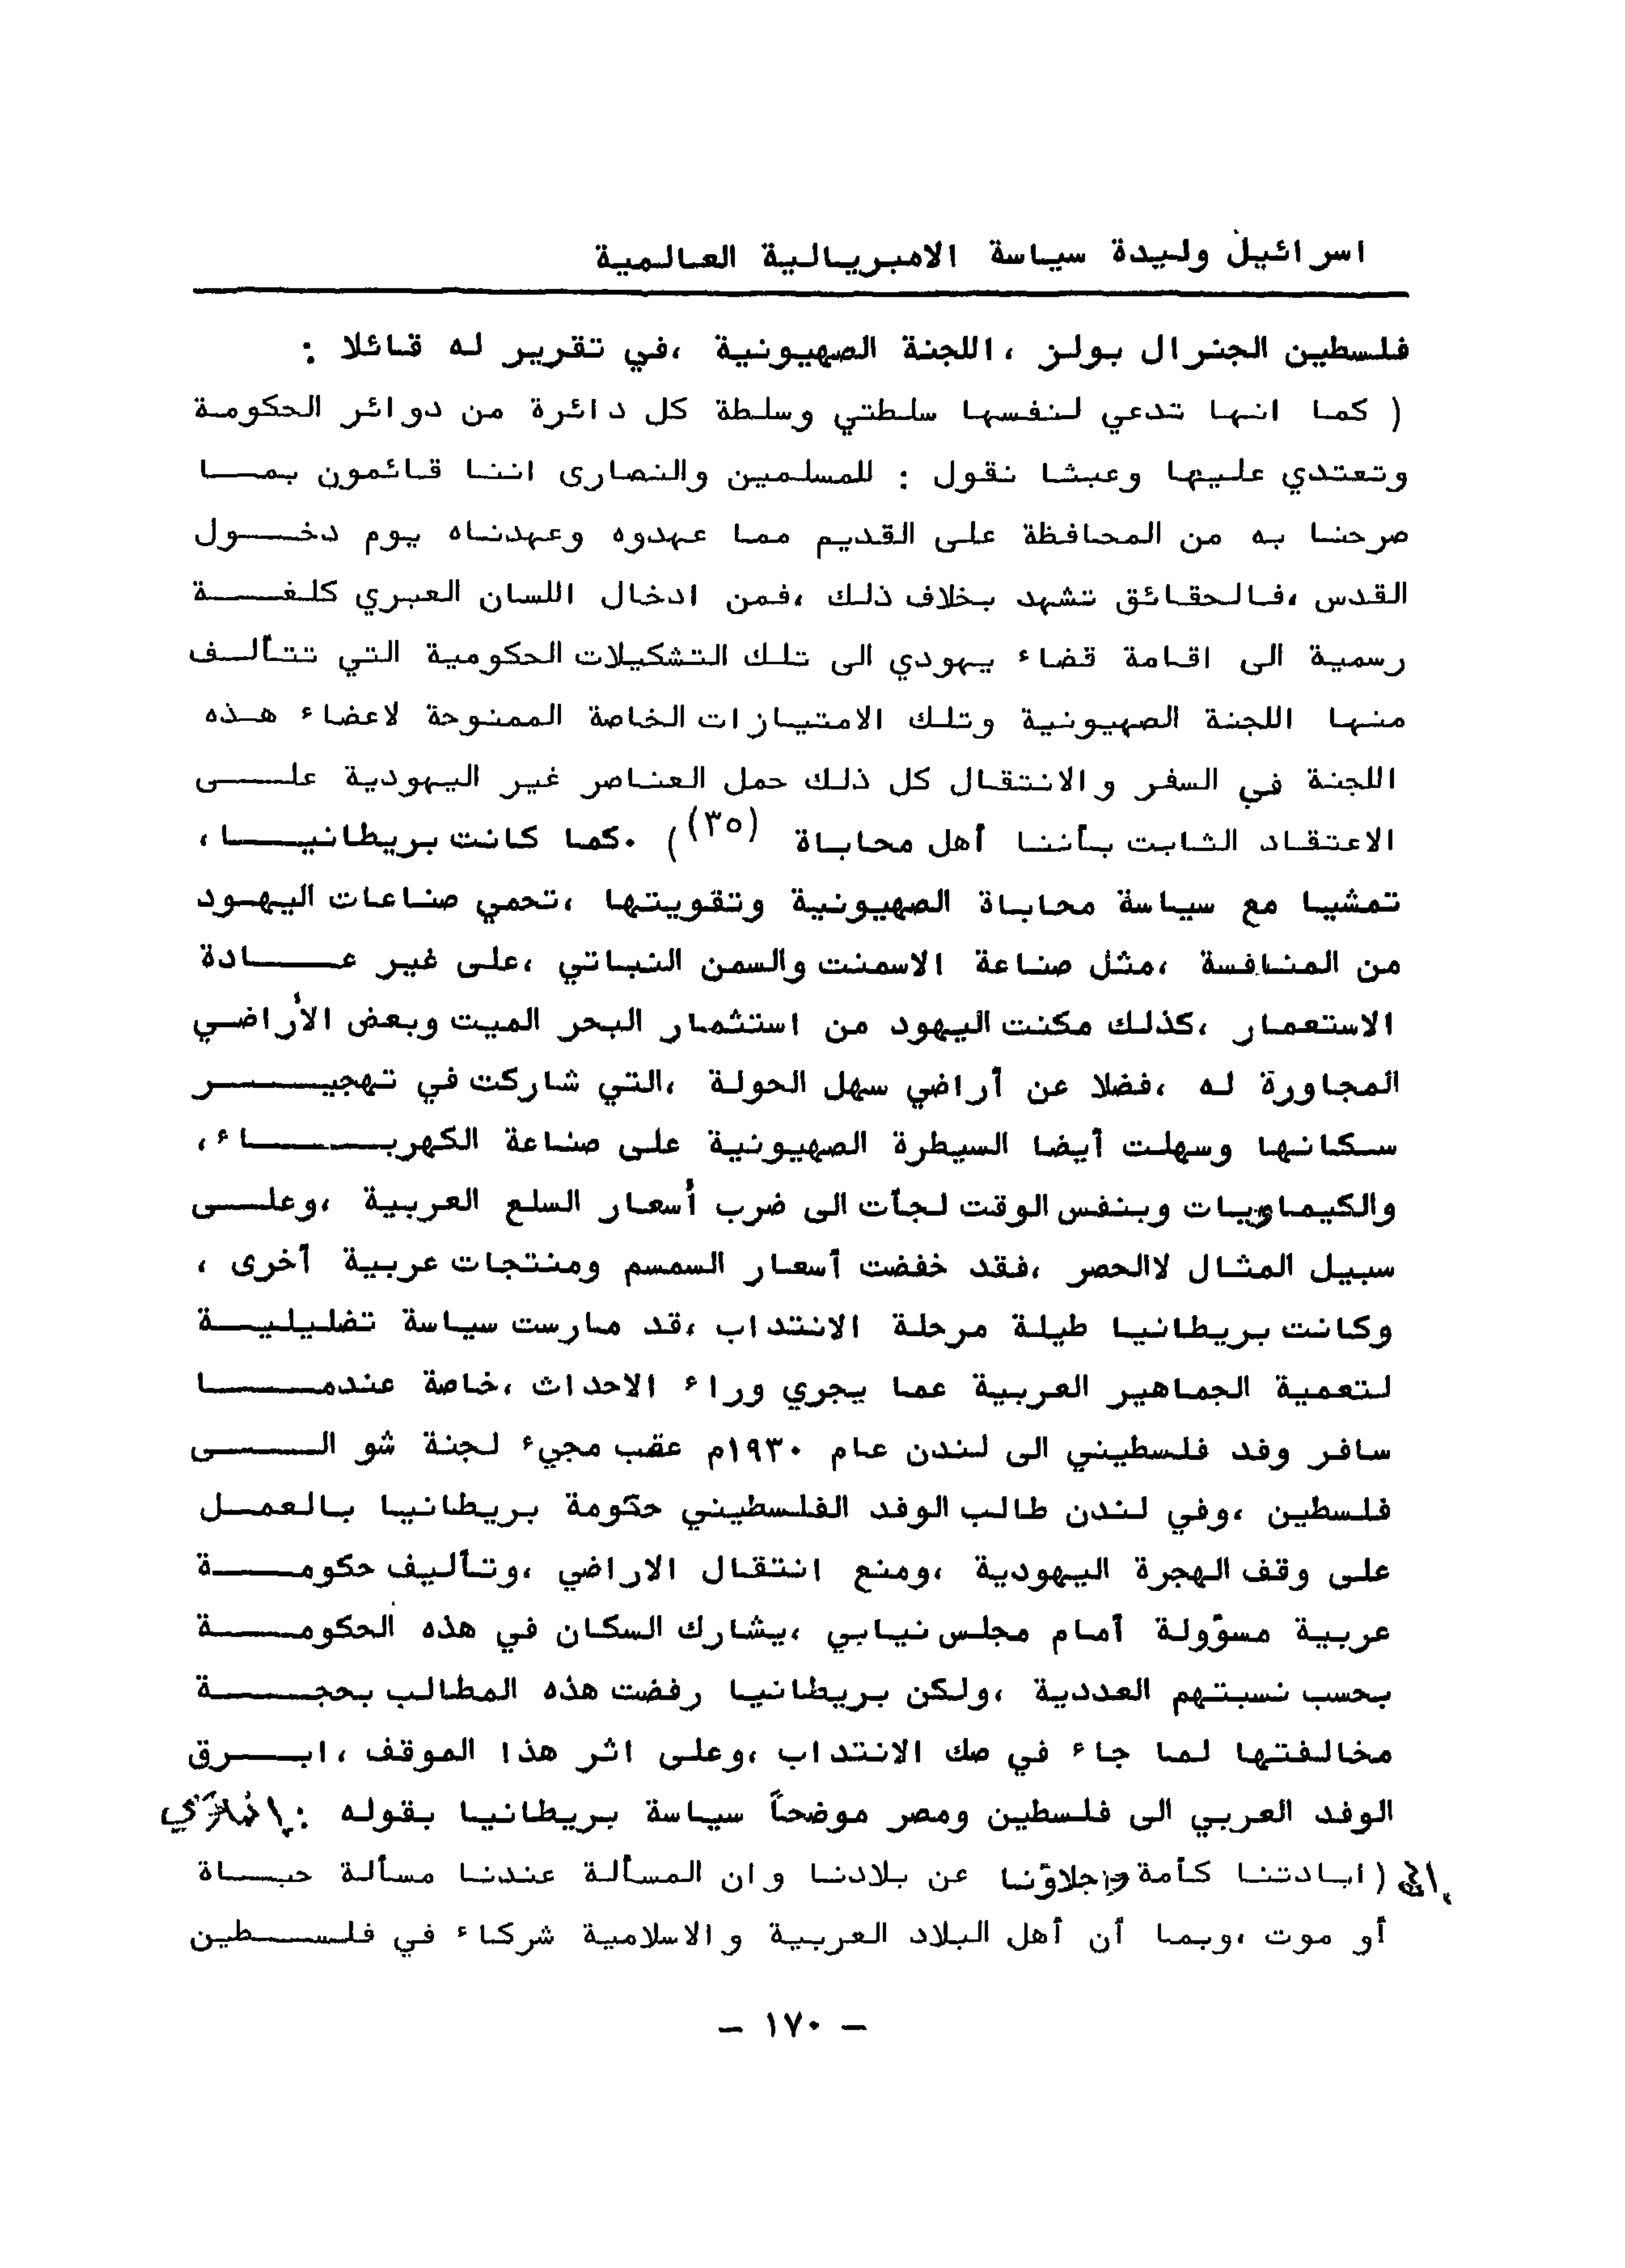 اسرائيل وليدة سياسة الامبريالية العالمية
فلسطين الجنرال بولز ،اللجنة الصهيونية ،في تقرير له قائلا :
( كما انها تدعي لنفسها سلطتي وسلطة كل دائرة من دوائر الحكومة
وتعتدي عليها وعبثا نقول : للمسلمين والنصارى اننا قائمون بمـــا
صرحنا به من المحافظة على القديم مما عهدوه وعهدناه يوم دخـــول
القدس ،فالحقائق تشهد بخلاف ذلك ،فمن ادخال اللسان العبري كلغـــة
رسمية الى اقامة قضاء يهودي الى تلك التشكيلات الحكومية التي تتألــف
منها اللجنة الصهيونية وتلك الامتيازات الخاصة الممنوحة لاعضاء هــذه
اللجنة في السفر والانتقال كل ذلك حمل العناصر غير اليهودية علـــى
الاعتقاد الثابت بأننا أهل محاباة (٣٥)) .كما كانت بريطانيـــا ،
تمشيا مع سياسة محاباة الصهيونية وتقويتها ،تحمي صناعات اليهـود
من المنافسة ،مثل صناعة الاسمنت والسمن النباتي ،على غير عـــادة
الاستعمار ،كذلك مكنت اليهود من استثمار البحر الميت وبعض الأراضـي
المجاورة له ،فضلا عن أراضي سهل الحولة ،التي شاركت في تهجيـــر
سكانها وسهلت أيضا السيطرة الصهيونية على صناعة الكهربـــاء ،
والكيماويات وبنفس الوقت لجأت الى ضرب أسعار السلع العربية ،وعلــى
سبيل المثال لاالحصر ،فقد خفضت أسعار السمسم ومنتجات عربية أخرى ،
وكانت بريطانيا طيلة مرحلة الانتداب ،قد مارست سياسة تضليليــة
لتعمية الجماهير العربية عما يجري وراء الاحداث ،خاصة عندمـــا
سافر وفد فلسطيني الى لندن عام ١٩٣٠م عقب مجيء لجنة شو الـــى
فلسطين ،وفي لندن طالب الوفد الفلسطيني حكومة بريطانيا بالعمــل
على وقف الهجرة اليهودية ،ومنع انتقال الاراضي ،وتأليف حكومـــة
عربية مسؤولة أمام مجلس نيابي ،يشارك السكان في هذه الحكومـــة
بحسب نسبتهم العددية ،ولكن بريطانيا رفضت هذه المطالب بحجـــة
مخالفتها لما جاء في صك الانتداب ،وعلى اثر هذا الموقف ،ابـــرق
الوفد العربي الى فلسطين ومصر موضحاً سياسة بريطانيا بقوله :
( ابادتنا كأمة واجلاؤنا عن بلادنا وان المسألة عندنا مسألة حيــاة
أو موت ،وبما أن أهل البلاد العربية والاسلامية شركاء في فلســـطين
– ١٧٠ –